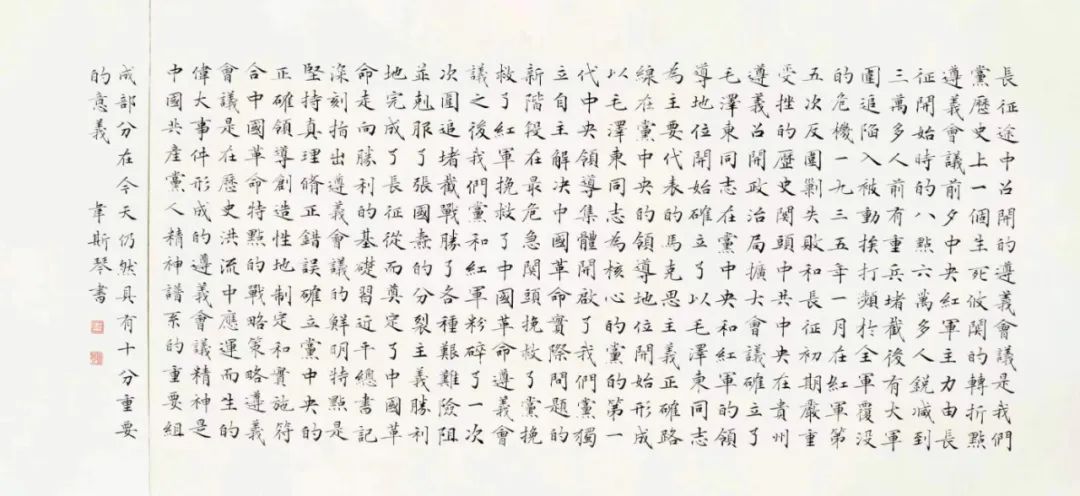 長征途中召開的遵義會議是我們
黨歷史上一個生死攸関的轉折點
遵義會議前夕中央紅軍主力由長
征開始時的八點六萬多人銳減到
三萬多人前有重兵堵截後有大軍
圍追陷入被動挨打頻於全軍覆没
的危機一九三五年一月在紅軍第
五次反圍剿失敗和長征初期嚴重
受挫的歷史関頭中共中央在貴州
遵義召開政治局擴大會議確立了
毛澤東同志在黨中央和紅軍的領
導地位開始確立了以毛澤東同志
為主要代表的馬克思主義正確路
線在黨中央的領導地位開始形成
以毛澤東同志為核心的黨的第一
代中央領導集體開啟了我們黨獨
立自主解决中國革命實際問題的
新階段在最危急関頭挽救了黨挽
救了紅軍挽救了中國革命遵義會
議之後我們黨和紅軍粉碎了一次
次圍追堵截戰勝了各種艱難險阻
並剋服了張國燾的分裂主義勝利
地完成了長征從而奠定了中國革
命走向勝利的基礎習近平總書記
深刻指出遵義會議的鮮明特點是
堅持真理脩正錯誤確立黨中央的
正確領導創造性地制定和實施符
合中國革命特點的戰略策略遵義
會議是在歷史洪流中應運而生的
偉大事件形成的遵義會議精神是
中國共產黨人精神譜系的重要組
成部分在今天仍然具有十分重要
的意義 韋斯琴書